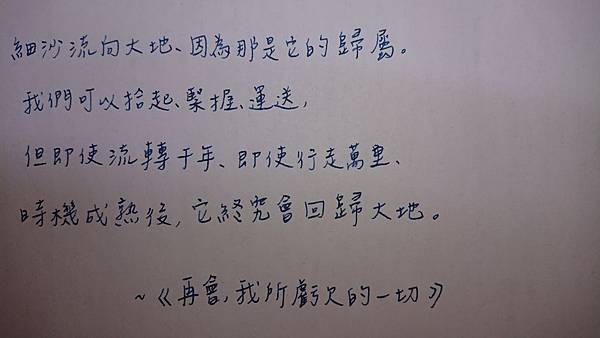 細沙流向大地、因為那是它的歸屬。
我們可以拾起、緊握、運送,
但即使流轉千年、即使行走萬里、
時機成熟後,它終究會回歸大地。
~《再會,我所虧欠的一切》